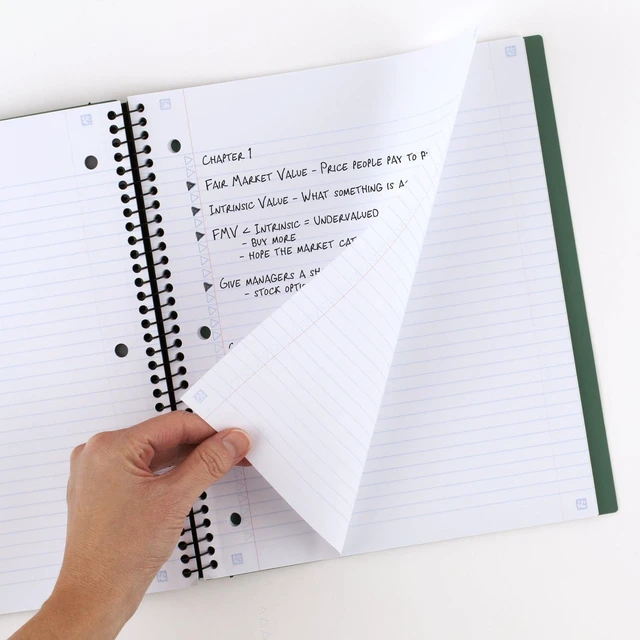 CHAPTER 1
FAIR MARKET VALUE - PRICE PEOPLE PAY TO
INTRINSIC VALUE - WHAT SOMETHING IS
FMV < INTRINSIC = UNDERVALUED
- BUY MORE
- HOPE THE MARKET
GIVE MANAGERS A
- STOCK